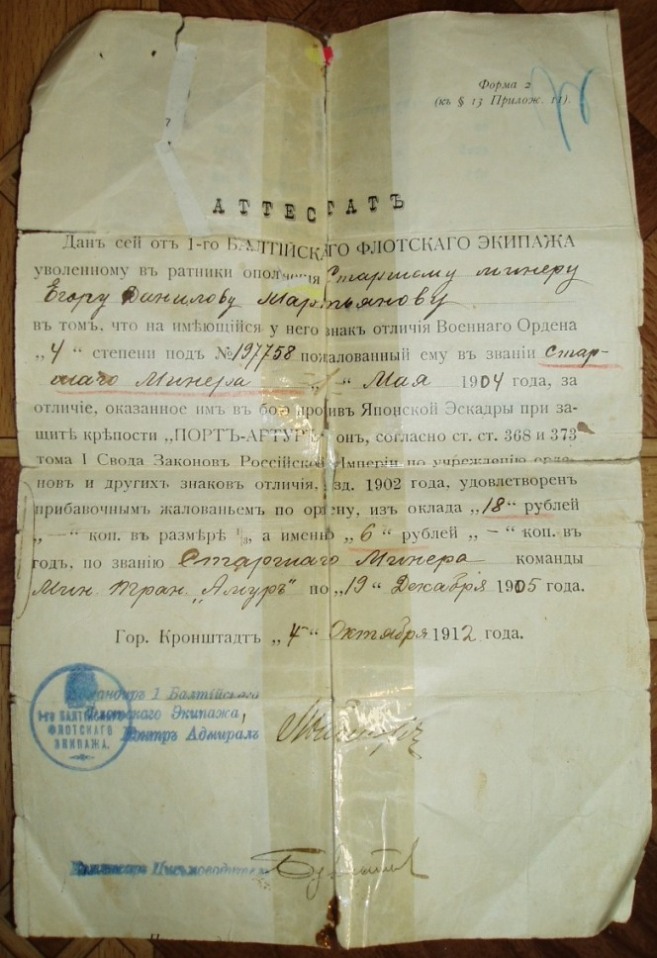 Форма 2
(къ § 13 Прилож. 11).
7
АТТЕСТАТЪ
Данъ сей отъ 1-го БАЛТІЙСКАГО ФЛОТСКАГО ЭКИПАЖА
уволенному въ ратники ополченія Старшему минеру
Егору Данилову Мартьянову
въ томъ, что на имѣющійся у него знакъ отличія Военнаго Ордена
„4“ степени подъ № 197758 пожалованный ему въ званіи Стар-
шаго Минера Мая 1904 года, за
отличіе, оказанное имъ въ бою противъ Японской Эскадры при за-
щитѣ крѣпости „ПОРТЪ-АРТУРЪ“ онъ, согласно ст. ст. 368 и 373
тома I Свода Законовъ Россійской Имперіи по учрежденію орде-
новъ и другихъ знаковъ отличія, изд. 1902 года, удовлетворенъ
прибавочнымъ жалованьемъ по ордену, изъ оклада „18“ рублей
„—“ коп. въ размѣрѣ ⅓, а именно „6“ рублей „—“ коп. въ
годъ, по званію Старшаго Минера команды
Мин. тран. „Амуръ“ по „19“ Декабря 1905 года.
Гор. Кронштадтъ „4“ Октября 1912 года.
Командиръ 1 Балтійскаго
Флотскаго Экипажа,
Контръ Адмиралъ
1-го БАЛТІЙСКАГО
ФЛОТСКАГО
ЭКИПАЖА.
Письмоводитель